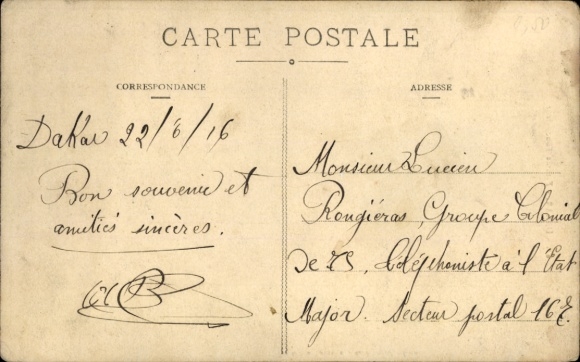 CARTE POSTALE
CORRESPONDANCE
ADRESSE
Dakar 22/6/16
Bon souvenir et
amitiés sincères.
Monsieur Lucien
Rongiéras, Groupe Colonial
de 75, téléphoniste à l'État
Major. Secteur postal 167.